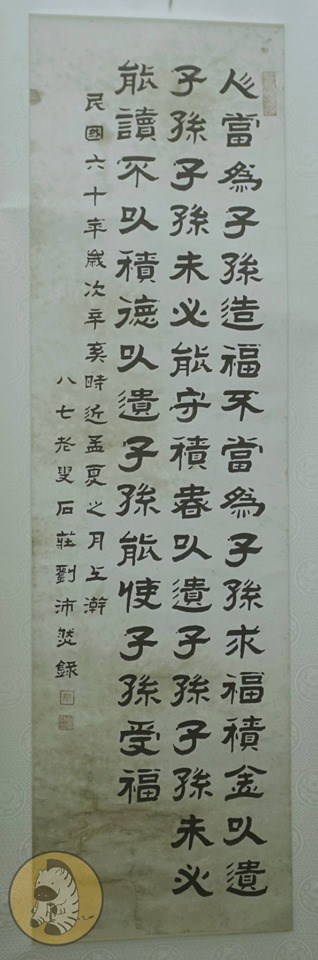 人當為子孫造福不當為子孫求福積金以遺
子孫子孫未必能守積書以遺子孫子孫未必
能讀不以積德以遺子孫能使子孫受福
民國六十年歲次辛亥時近孟夏之月上澣
八七老叟石莊劉沛然錄